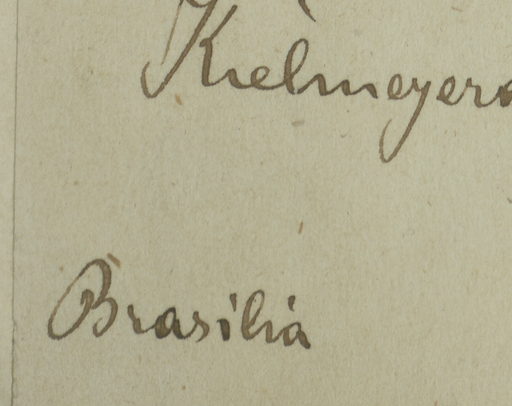 Kielmeyera
Brasilia